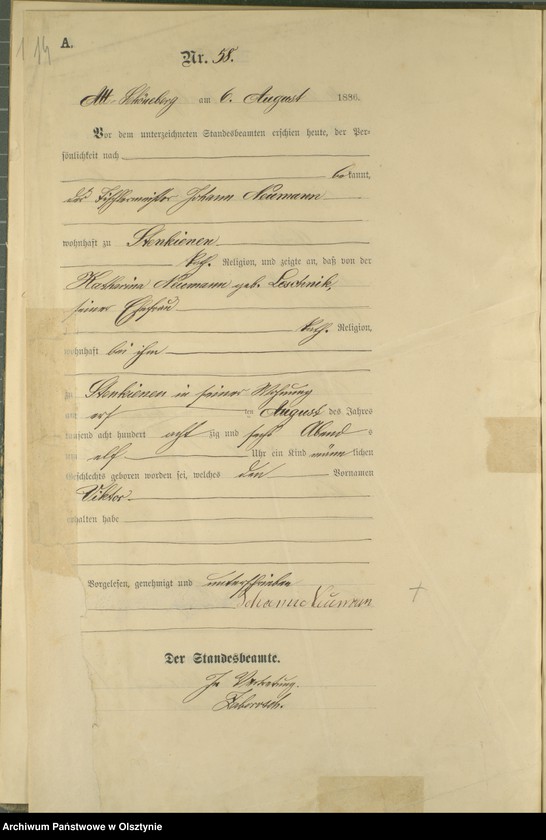 114
A.
Nr. 58.
Alt-Schöneberg am 6. August 1886.
Vor dem unterzeichneten Standesbeamten erschien heute, der Per-
sönlichkeit nach
bekannt,
der Tischlermeister Johann Neumann
wohnhaft zu Stenkienen
kath. Religion, und zeigte an, daß von der
Katharina Neumann geb. Leschnik,
seiner Ehefrau
kath. Religion,
wohnhaft bei ihm
zu Stenkienen in seiner Wohnung
am ten August des Jahres
tausend acht hundert acht zig und sechs Abend s
um elf Uhr ein Kind männ lichen
Geschlechts geboren worden sei, welches den Vornamen
Viktor
erhalten habe
Vorgelesen, genehmigt und unterschrieben
Johann Neumann
Der Standesbeamte.
In Vertretung.
Archiwum Państwowe w Olsztynie